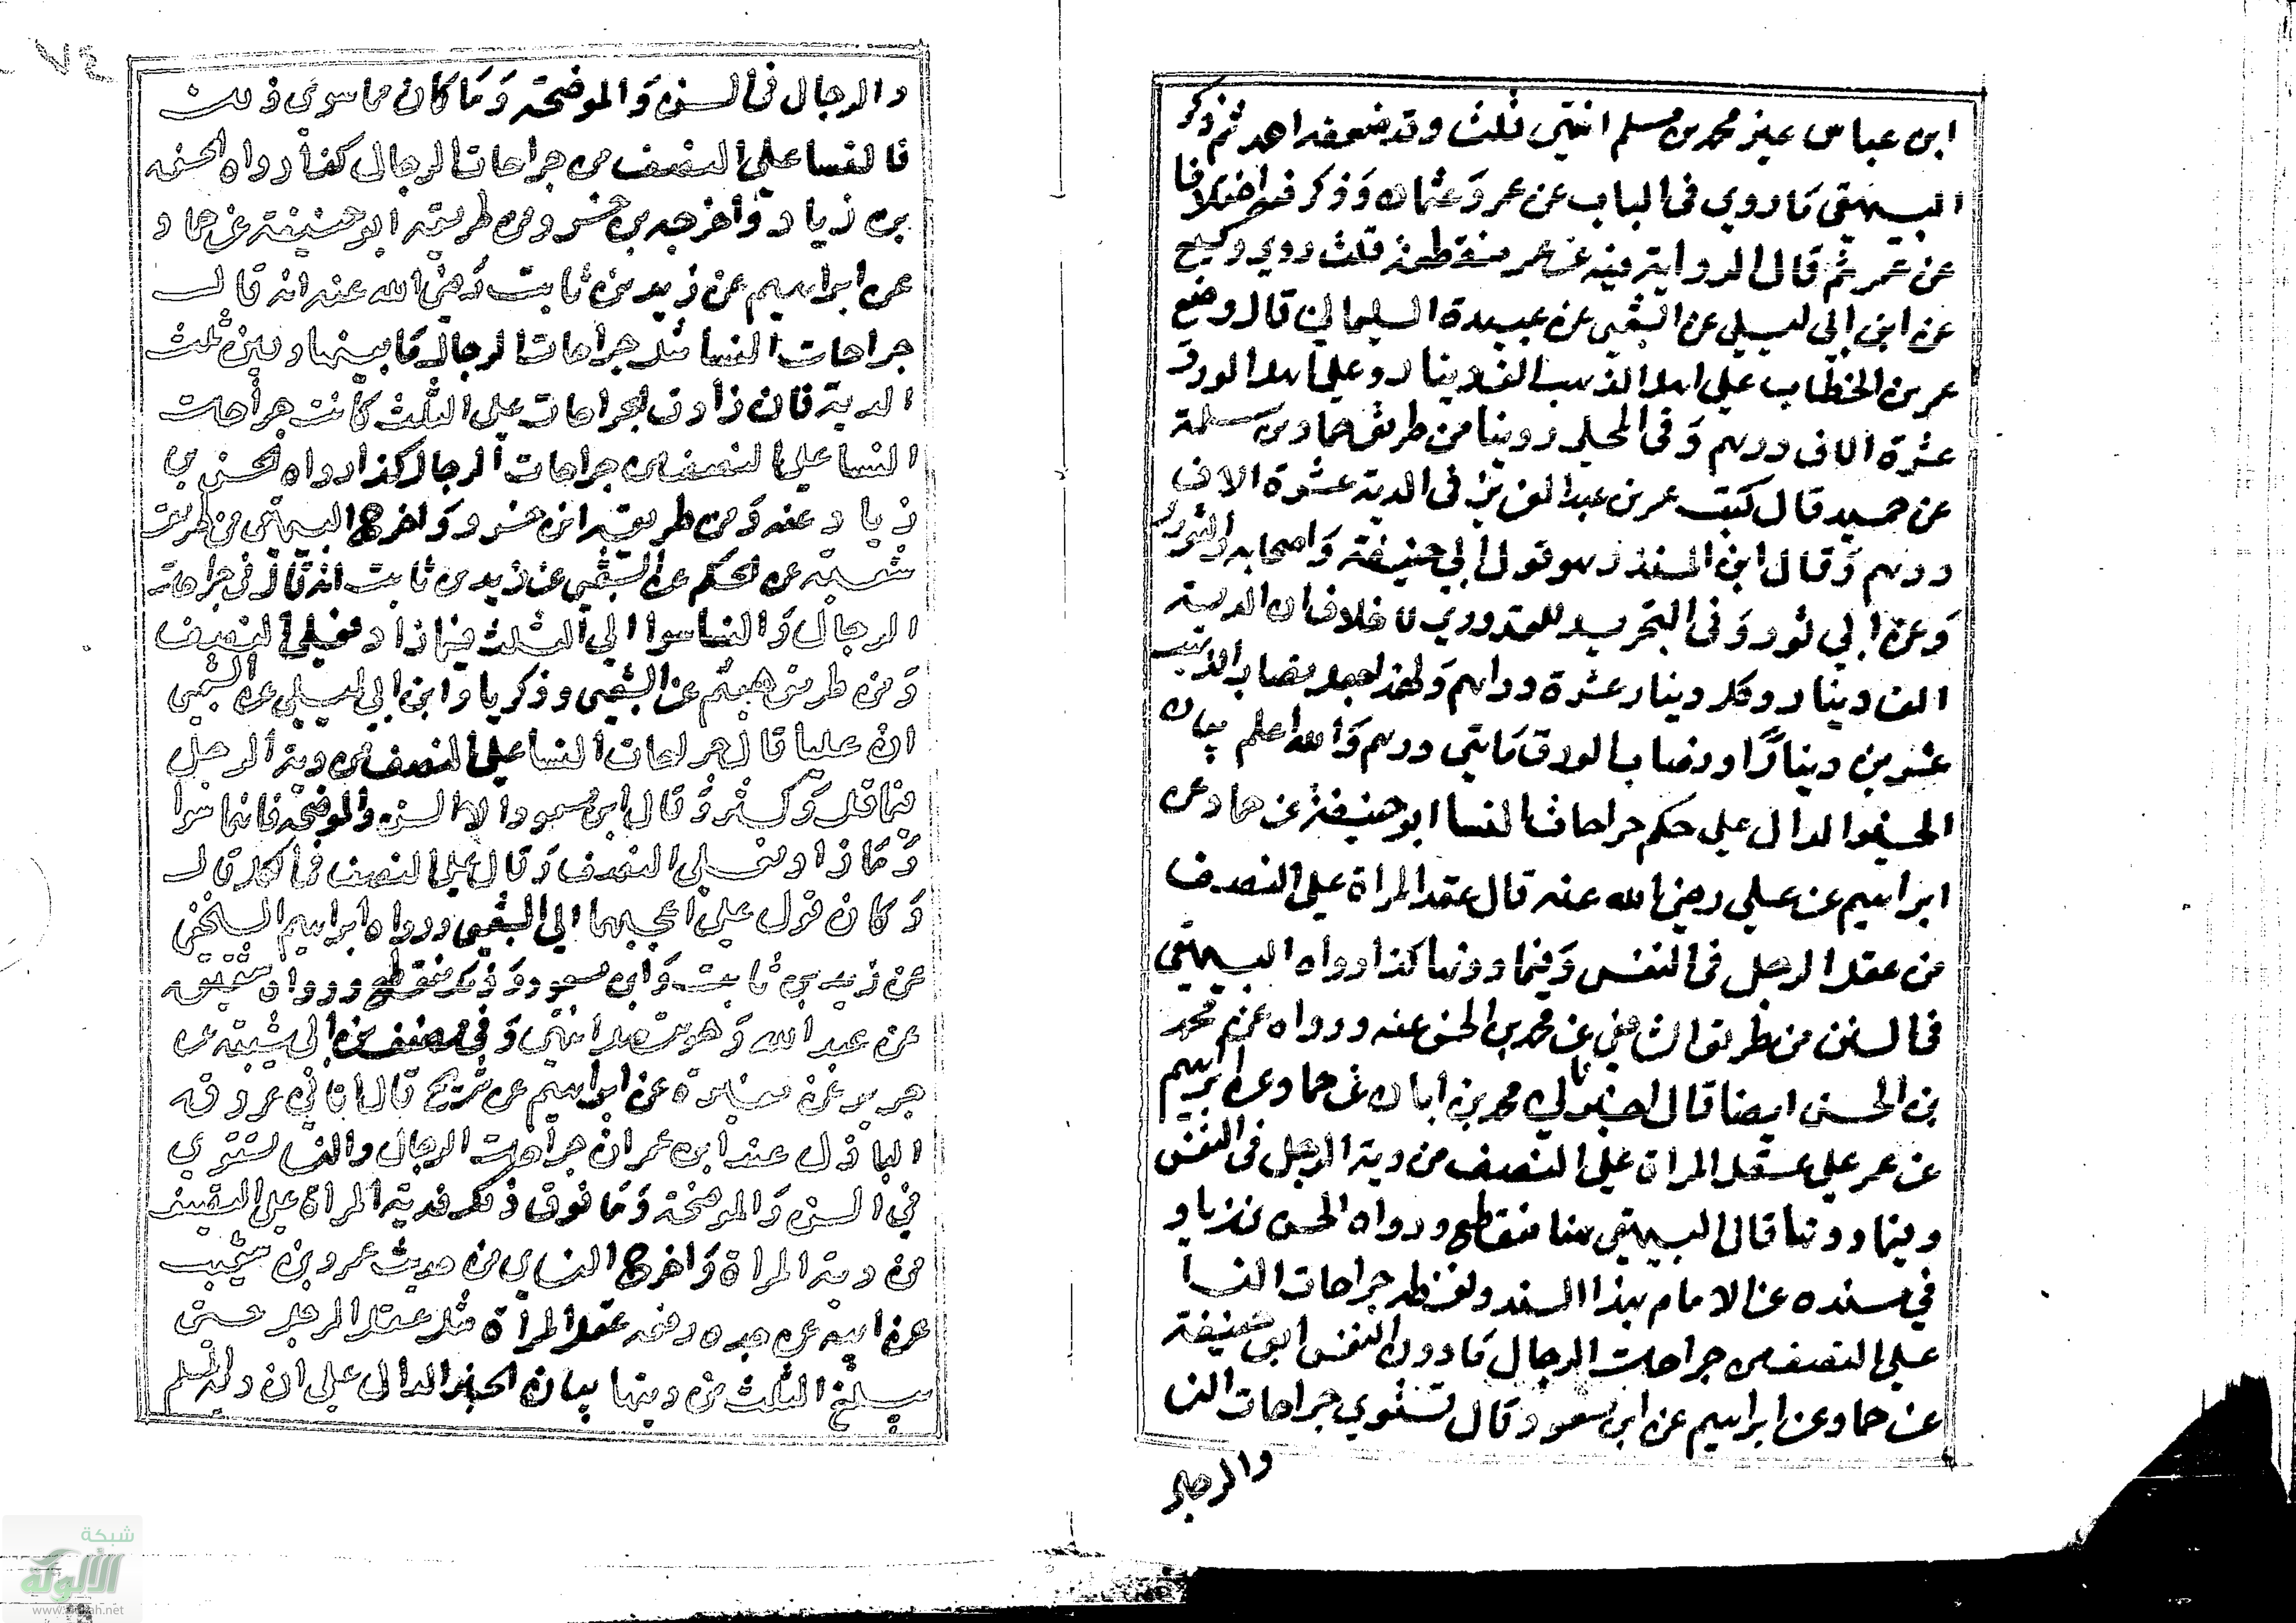 ابن عباس غير محمد بن مسلم انتهى قلت وقد ضعفه احمد ثم ذكر
البيهقي ما روي في الباب عن عمر وعثمان وذكر فيه اختلافا
عن عمر ثم قال الرواية فيه عن عمر منقطعة قلت روى وكيع
عن ابن ابي ليلى عن الشعبي عن عبيدة السلماني قال وضع
عمر بن الخطاب على اهل الذهب الف دينار وعلى اهل الورق
عشرة الاف درهم وفي المحلى روينا من طريق حماد بن سلمة
عن حميد قال كتب عمر بن عبد العزيز في الدية عشرة الاف
درهم وقال ابن المنذر هو قول ابي حنيفة واصحابه والثوري
وعن ابي ثور وفي التجريد للقدوري لا خلاف ان الدية
الف دينار وكل دينار عشرة دراهم ولهذا جعل نصاب الذهب
عشرين دينارا ونصاب الورق مايتي درهم والله اعلم بيان
الخبر الدال على حكم جراحات النسا ابو حنيفة عن حماد عن
ابراهيم عن علي رضي الله عنه قال عقل المراة على النصف
من عقل الرجل في النفس وفيما دونها كذا رواه البيهقي
في السنن من طريق الشافعي عن محمد بن الحسن عنه ورواه عن محمد
بن الحسن ايضا قال اخبرنا محمد بن ابان عن حماد عن ابراهيم
عن عمر وعلي عقل المراة على النصف من دية الرجل في النفس
وفيما دونها قال البيهقي هذا منقطع ورواه الحسن بن زياد
في مسنده عن الامام بهذا السند ولفظه جراحات النسا
على النصف من جراحات الرجال ما دون النفس ابو حنيفة
عن حماد عن ابراهيم عن ابن مسعود قال تستوي جراحات النسا
والرجال
والرجال في السن والموضحة وما كان مما سوى ذلك
فالنسا على النصف من جراحات الرجال كذا رواه الحسن
بن زياد واخرجه بن خسرو من طريقه ابو حنيفة عن حماد
عن ابراهيم عن زيد بن ثابت رضي الله عنه انه قال
جراحات النسا مثل جراحات الرجال ما بينها وبين ثلث
الدية فان زادت الجراحات على الثلث كانت جراحات
النسا على النصف من جراحات الرجال كذا رواه الحسن بن
زياد عنه ومن طريقه ابن خسرو واخرج البيهقي من طريق
شعبة عن الحكم عن الشعبي عن زيد بن ثابت انه قال في جراحات
الرجال والنسا سوا الى الثلث فما زاد فعلى النصف
ومن طريق هشيم عن الشعبي وزكريا وابن ابي ليلى عن الشعبي
ان عليا قال جراحات النسا على النصف من دية الرجل
فيما قل وكثر وقال ابن مسعود الا السن والموضحة فانهما سوا
وما زاد فعلى النصف وقال على النصف في الكل قال
وكان قول علي اعجبهما الى الشعبي ورواه ابراهيم النخعي
عن زيد بن ثابت وابن مسعود وذكر منقطع ورواه شقيق
عن عبد الله وهو موصل انتهى وفي مصنف بن ابي شيبة عن
جرير عن مغيرة عن ابراهيم عن شريح قال اتاني عروة
البارقي من عند عمر ان جراحات الرجال والنسا تستوي
في السن والموضحة وما فوق ذلك فدية المراة على النصف
من دية المراة واخرج النساي من حديث عمرو بن شعيب
عن ابيه عن جده رفعه عقل المراة مثل عقل الرجل حتى
يبلغ الثلث من ديتها بيان الخبر الدال على ان دية المسلم
شبكة
الألوكة
www.alukah.net